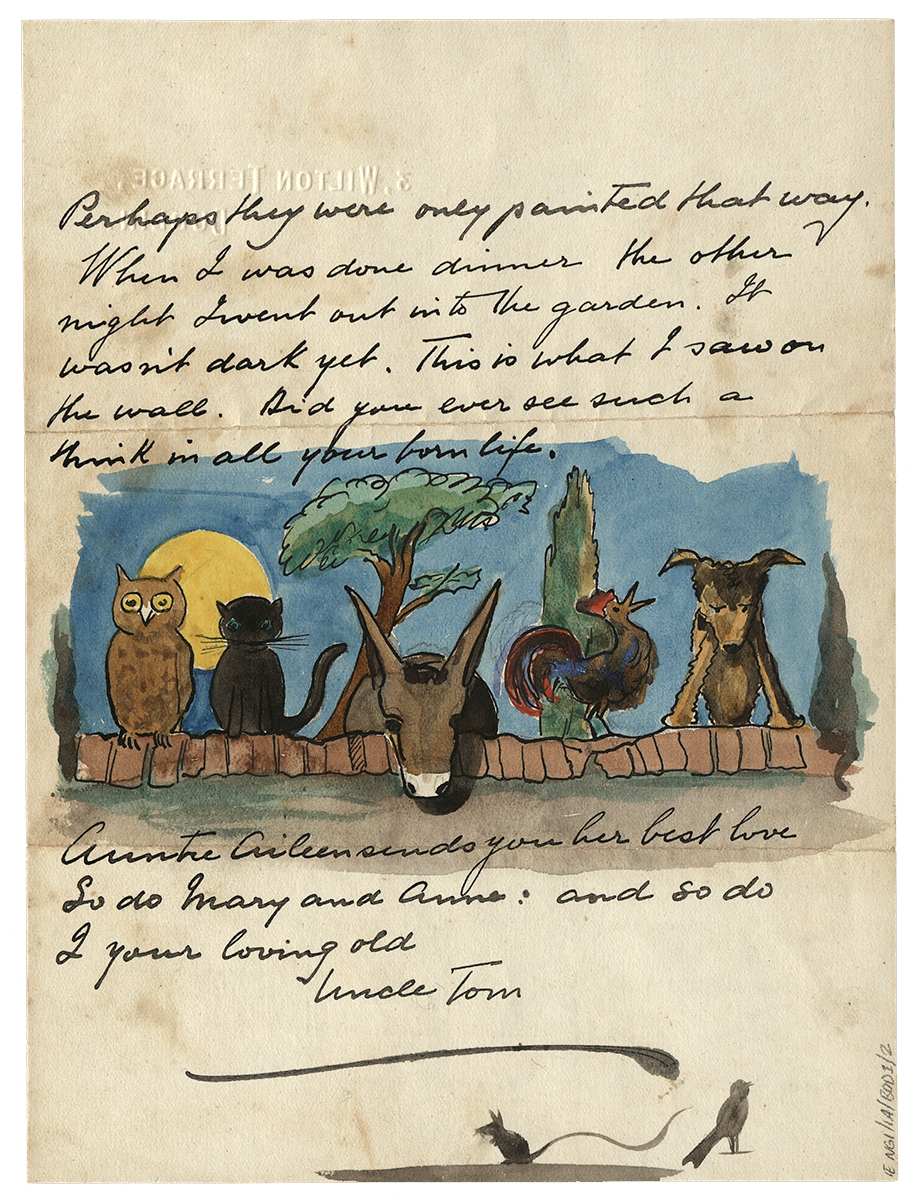 3, WILTON TERRACE,
Perhaps they were only painted that way.
When I was done dinner the other
night I went out into the garden. It
wasn't dark yet. This is what I saw on
the wall. Did you ever see such a
think in all your born life.
Auntie Aileen sends you her best love
So do Mary and Anne: and so do
I your loving old
Uncle Tom
IE NGI/IA/BOD1/2